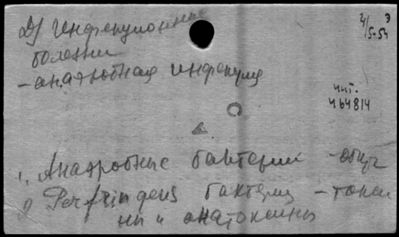 Д) Инфекционные
болезни
- анаэробная инфекция
4/5-54
инг.
464814
1, Анаэробные бактерии - общ.
2 Perfringens бактерии - токси
ны и анатоксины